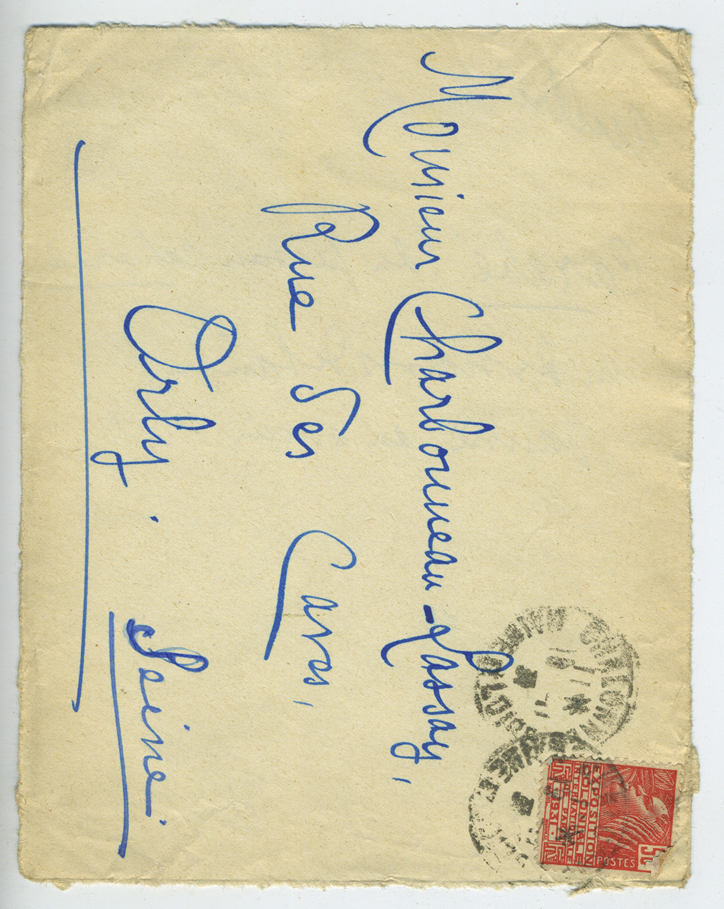 Monsieur Charbonneau-Lassay,
Rue des Caves,
Orly. Seine.
EXPOSITION
COLONIALE
INTERNATIONALE
PARIS 1931
POSTES